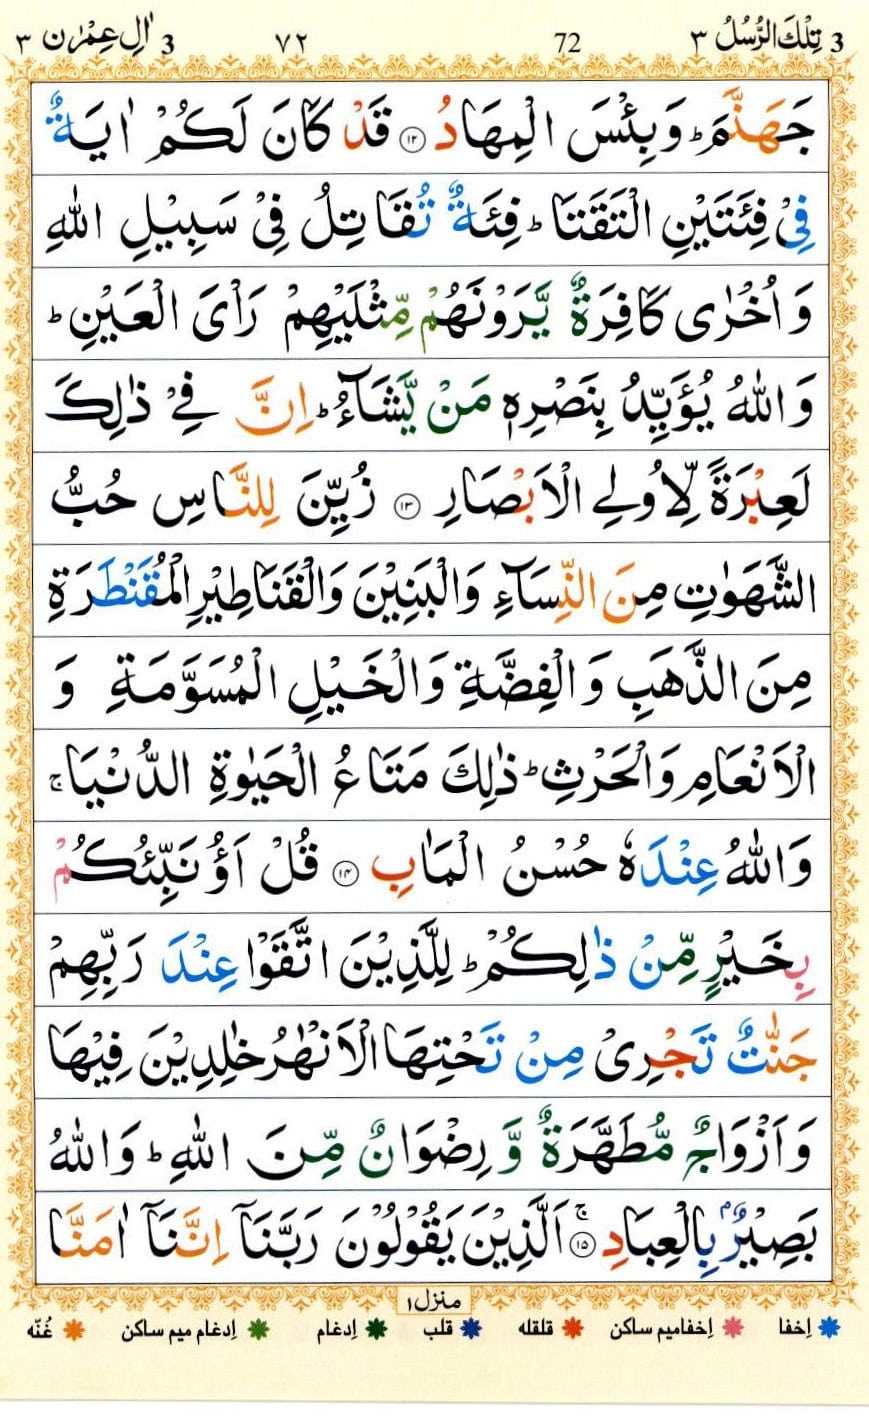 3 تِلْكَ الرُّسُلُ ٣ 72 ٧٢ 3 اٰلِ عِمْرٰن ٣
جَهَنَّمَ ؕ وَبِئْسَ الْمِهَادُ ۝۱۲ قَدْ كَانَ لَكُمْ اٰيَةٌ
فِىْ فِئَتَيْنِ الْتَقَتَا ؕ فِئَةٌ تُقَاتِلُ فِىْ سَبِيْلِ اللّٰهِ
وَ اُخْرٰى كَافِرَةٌ يَّرَوْنَهُمْ مِّثْلَيْهِمْ رَاْىَ الْعَيْنِ ؕ
وَاللّٰهُ يُؤَيِّدُ بِنَصْرِهٖ مَنْ يَّشَآءُ ؕ اِنَّ فِىْ ذٰلِكَ
لَعِبْرَةً لِّاُولِى الْاَبْصَارِ ۝۱۳ زُيِّنَ لِلنَّاسِ حُبُّ
الشَّهَوٰتِ مِنَ النِّسَآءِ وَالْبَنِيْنَ وَالْقَنَاطِيْرِ الْمُقَنْطَرَةِ
مِنَ الذَّهَبِ وَالْفِضَّةِ وَالْخَيْلِ الْمُسَوَّمَةِ وَ
الْاَنْعَامِ وَالْحَرْثِ ؕ ذٰلِكَ مَتَاعُ الْحَيٰوةِ الدُّنْيَا ۚ
وَاللّٰهُ عِنْدَهٗ حُسْنُ الْمَاٰبِ ۝۱۴ قُلْ اَؤُنَبِّئُكُمْ
بِخَيْرٍ مِّنْ ذٰلِكُمْ ؕ لِلَّذِيْنَ اتَّقَوْا عِنْدَ رَبِّهِمْ
جَنّٰتٌ تَجْرِىْ مِنْ تَحْتِهَا الْاَنْهٰرُ خٰلِدِيْنَ فِيْهَا
وَاَزْوَاجٌ مُّطَهَّرَةٌ وَّ رِضْوَانٌ مِّنَ اللّٰهِ ؕ وَاللّٰهُ
بَصِيْرٌۢ بِالْعِبَادِ ۚ۝۱۵ اَلَّذِيْنَ يَقُوْلُوْنَ رَبَّنَاۤ اِنَّنَاۤ اٰمَنَّا
منزل ۱
اِخفا اِخفامیم ساکن قلقله قلب اِدغام اِدغام میم ساکن غُنّه